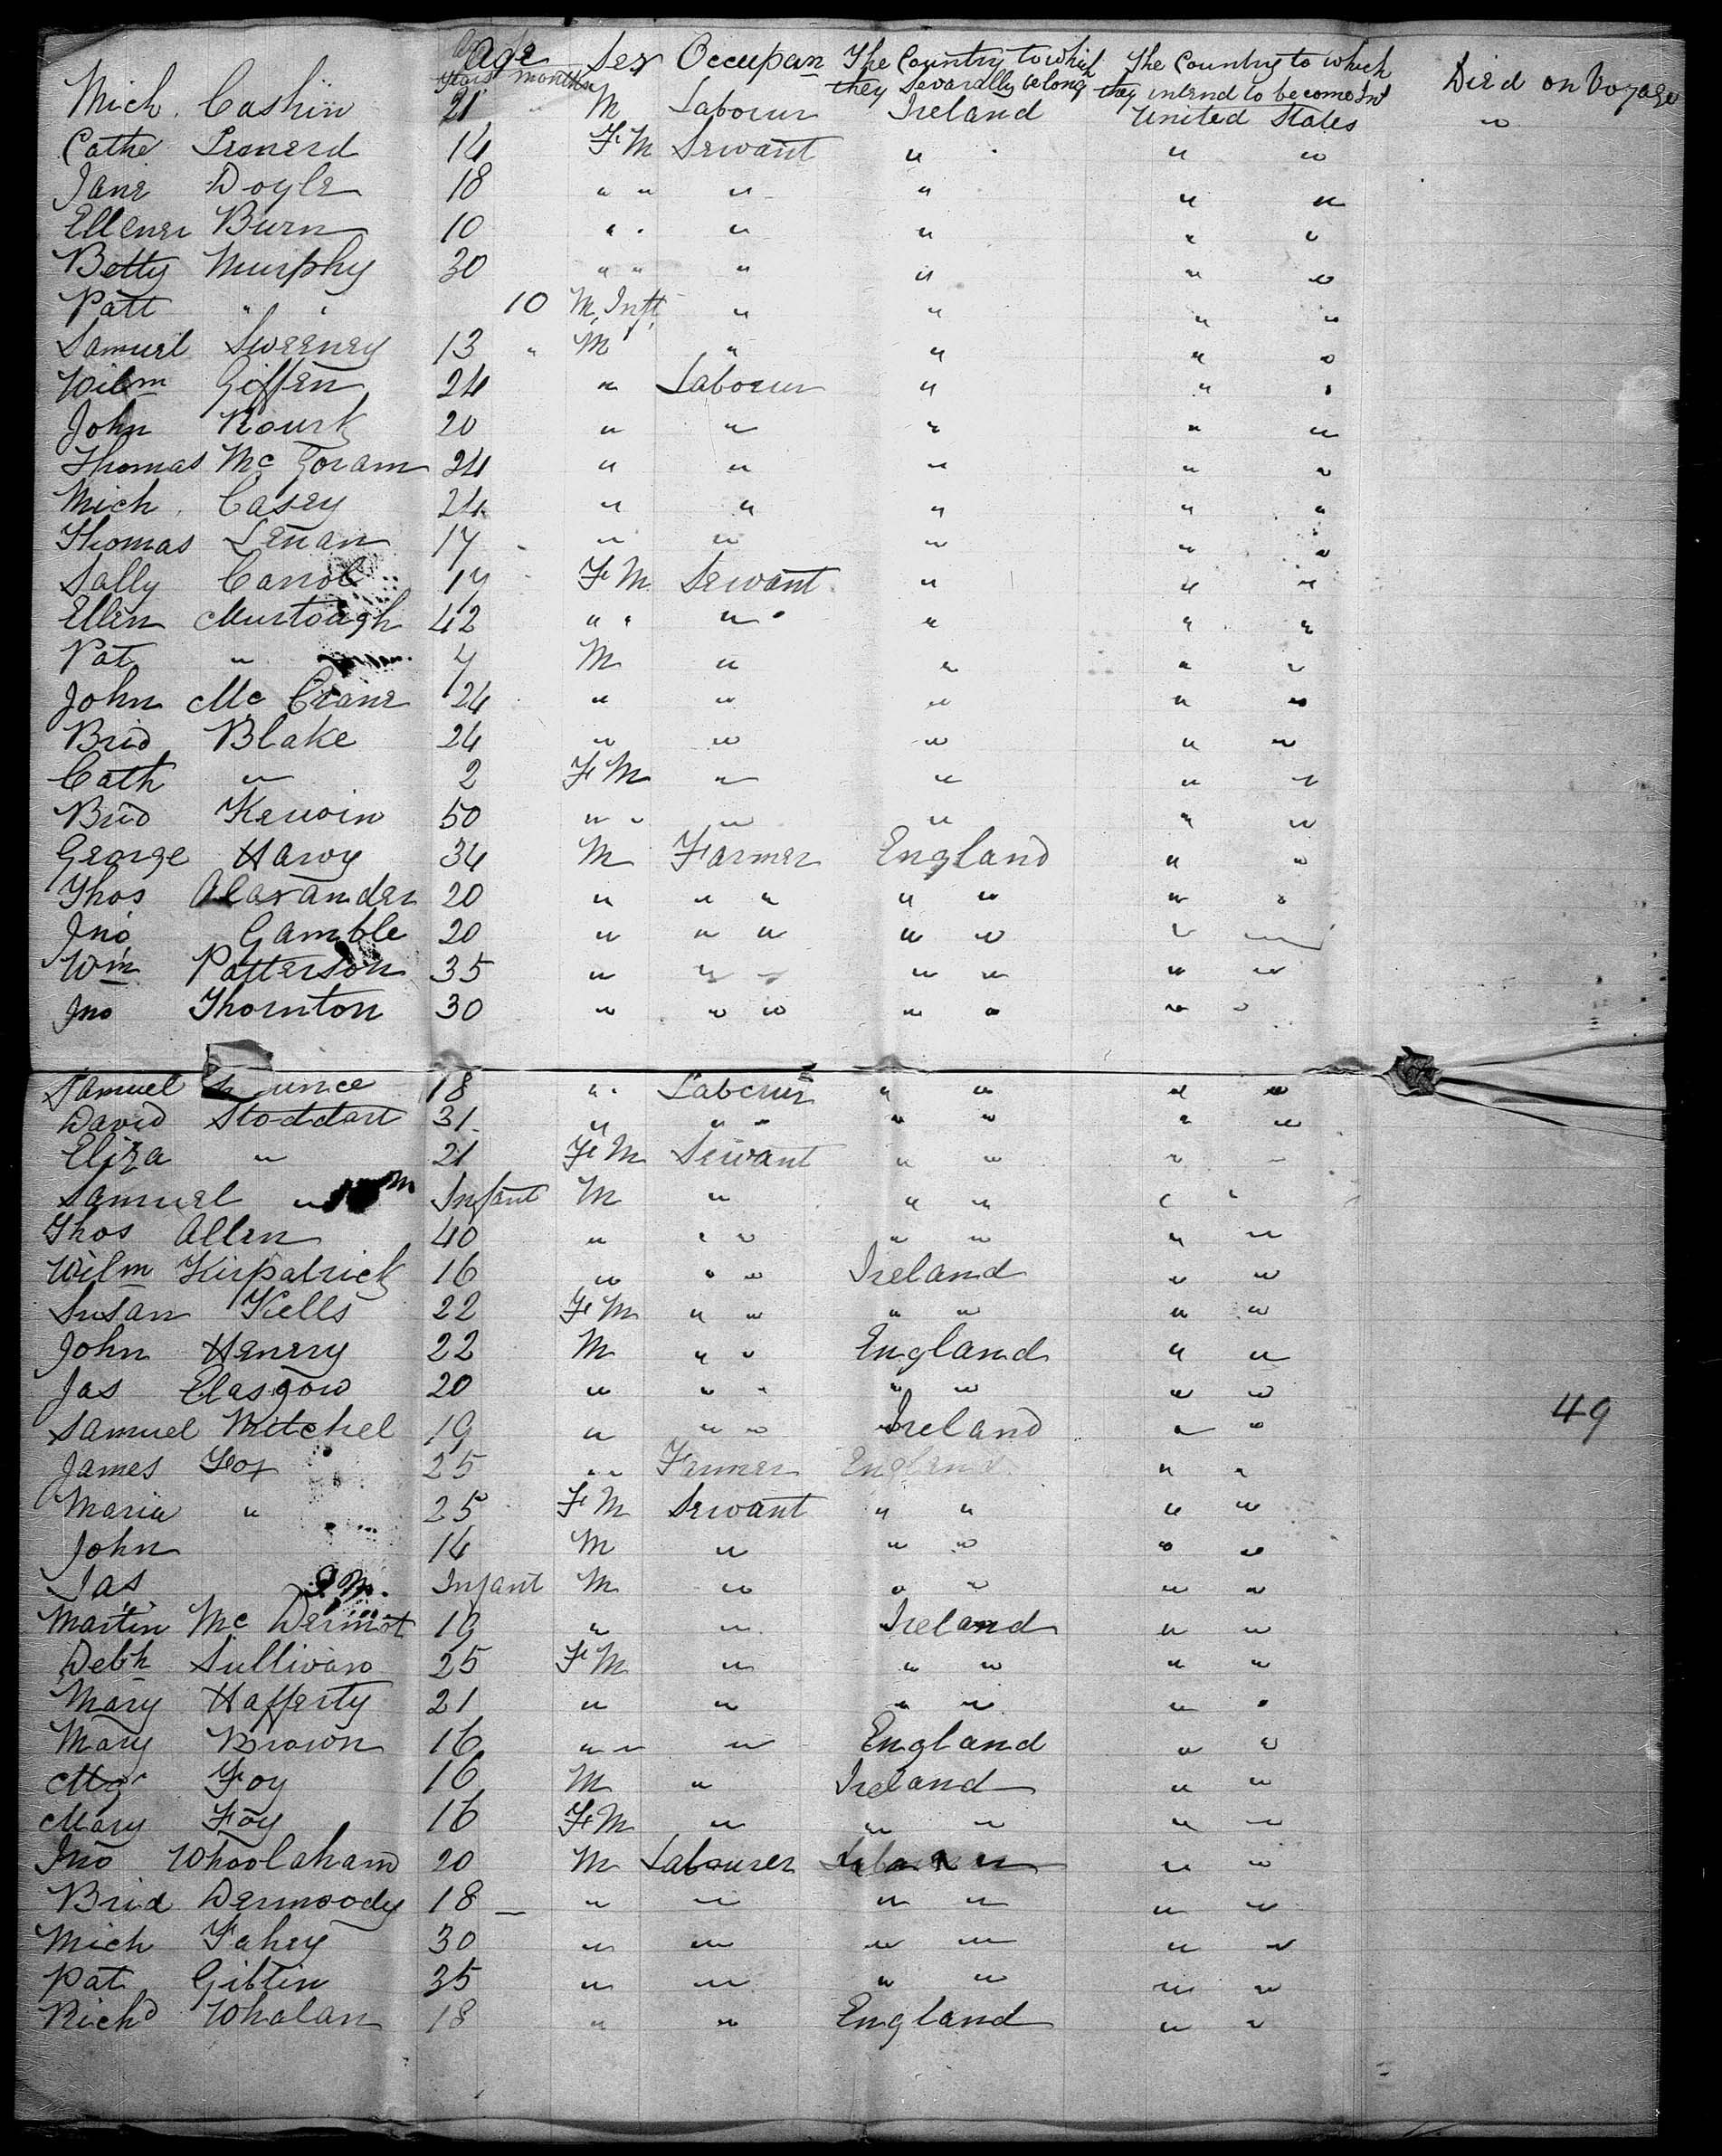 Age Sex Occupan The Country to which The Country to which Died on Voyage
Years months they Severally belong they intend to become Int
Mich. Cashin 21 " M Labour Ireland United States "
Cathe Lenerd 14 F M Servant " " "
Jane Doyle 18 " " " " " "
Ellener Burn 10 " " " " " "
Betty Murphy 30 " " " " " "
Patt " 10 M, Inft " " " "
Samuel Sweeney 13 " M " " " "
Wilm Giffen 24 " Labour " " "
John Rourk 20 " " " " "
Thomas Mc Goram 24 " " " " "
Mich. Casey 24 " " " " "
Thomas Lenan 17 " " " " "
Sally Carrol 17 F M Servant " " "
Ellen Murtough 42 " " " " " "
Pat " 7 M " " " "
John Mc Crane 24 " " " " "
Brid Blake 24 " " " " "
Cath " 2 F M " " " "
Brid Kerwin 50 " " " " " "
George Harvy 34 M Farmer England " "
Thos Alaxander 20 " " " " " " "
Jno Gamble 20 " " " " " " "
Wm Patterson 35 " " " " " " "
Jno Thornton 30 " " " " " " "
Samuel unce 18 " Labour " " " "
David Stoddart 31 " " " " " " "
Eliza " 21 F M Servant " " " "
Samuel " m Infant M " " " " "
Thos Allen 40 " " " " " " "
Wilm Kirpatrick 16 " " " Ireland " "
Susan Kells 22 F M " " " " " "
John Henery 22 M " " England " "
Jas Elasgow 20 " " " " " " "
Samuel Mitchel 19 " " " Ireland " " 49
James Fox 25 " " Farmer England " "
Maria " 25 F M Servant " " " "
John 14 M " " " " "
Jas 9 m. Infant M " " " " "
Martin Mc Dermot 19 " " Ireland " "
Debh Sullivan 25 F M " " " " "
Mary Hafferty 21 " " " " " "
Mary Brown 16 " " " England " "
Foy 16 M " Ireland " "
Mary Foy 16 F M " " " " "
Jno Whoolaham 20 M Labourer " "
Brid Dermoody 18 " " " " " "
Mich Fahey 30 " " " " " "
Pat Giblin 35 " " " " " "
Richd Whalan 18 " " England " "